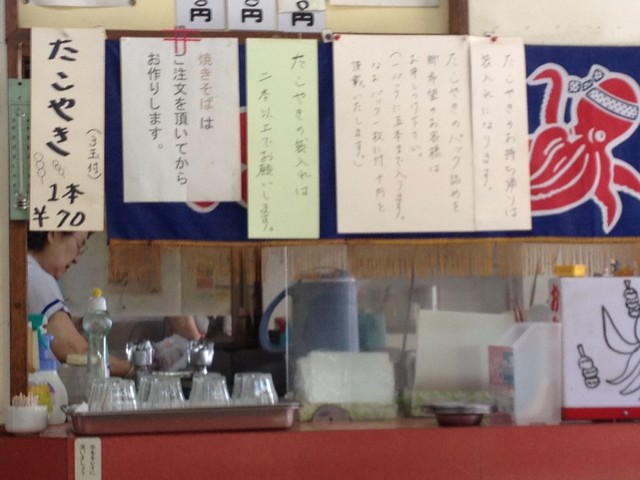 円
円
円
たこやき
(3玉付)
1本
¥70
焼きそばは
ご注文を頂いてから
お作りします。
たこやきの袋入れは
二本以上でお願いします。
たこやきのお持ち帰りは
袋入れになります。
たこやきのパック詰めを
御希望のお客様は
お申し下さい。
(一パックに五本まで入ります。
なお、パック一枚に付十円を
頂戴いたします。)